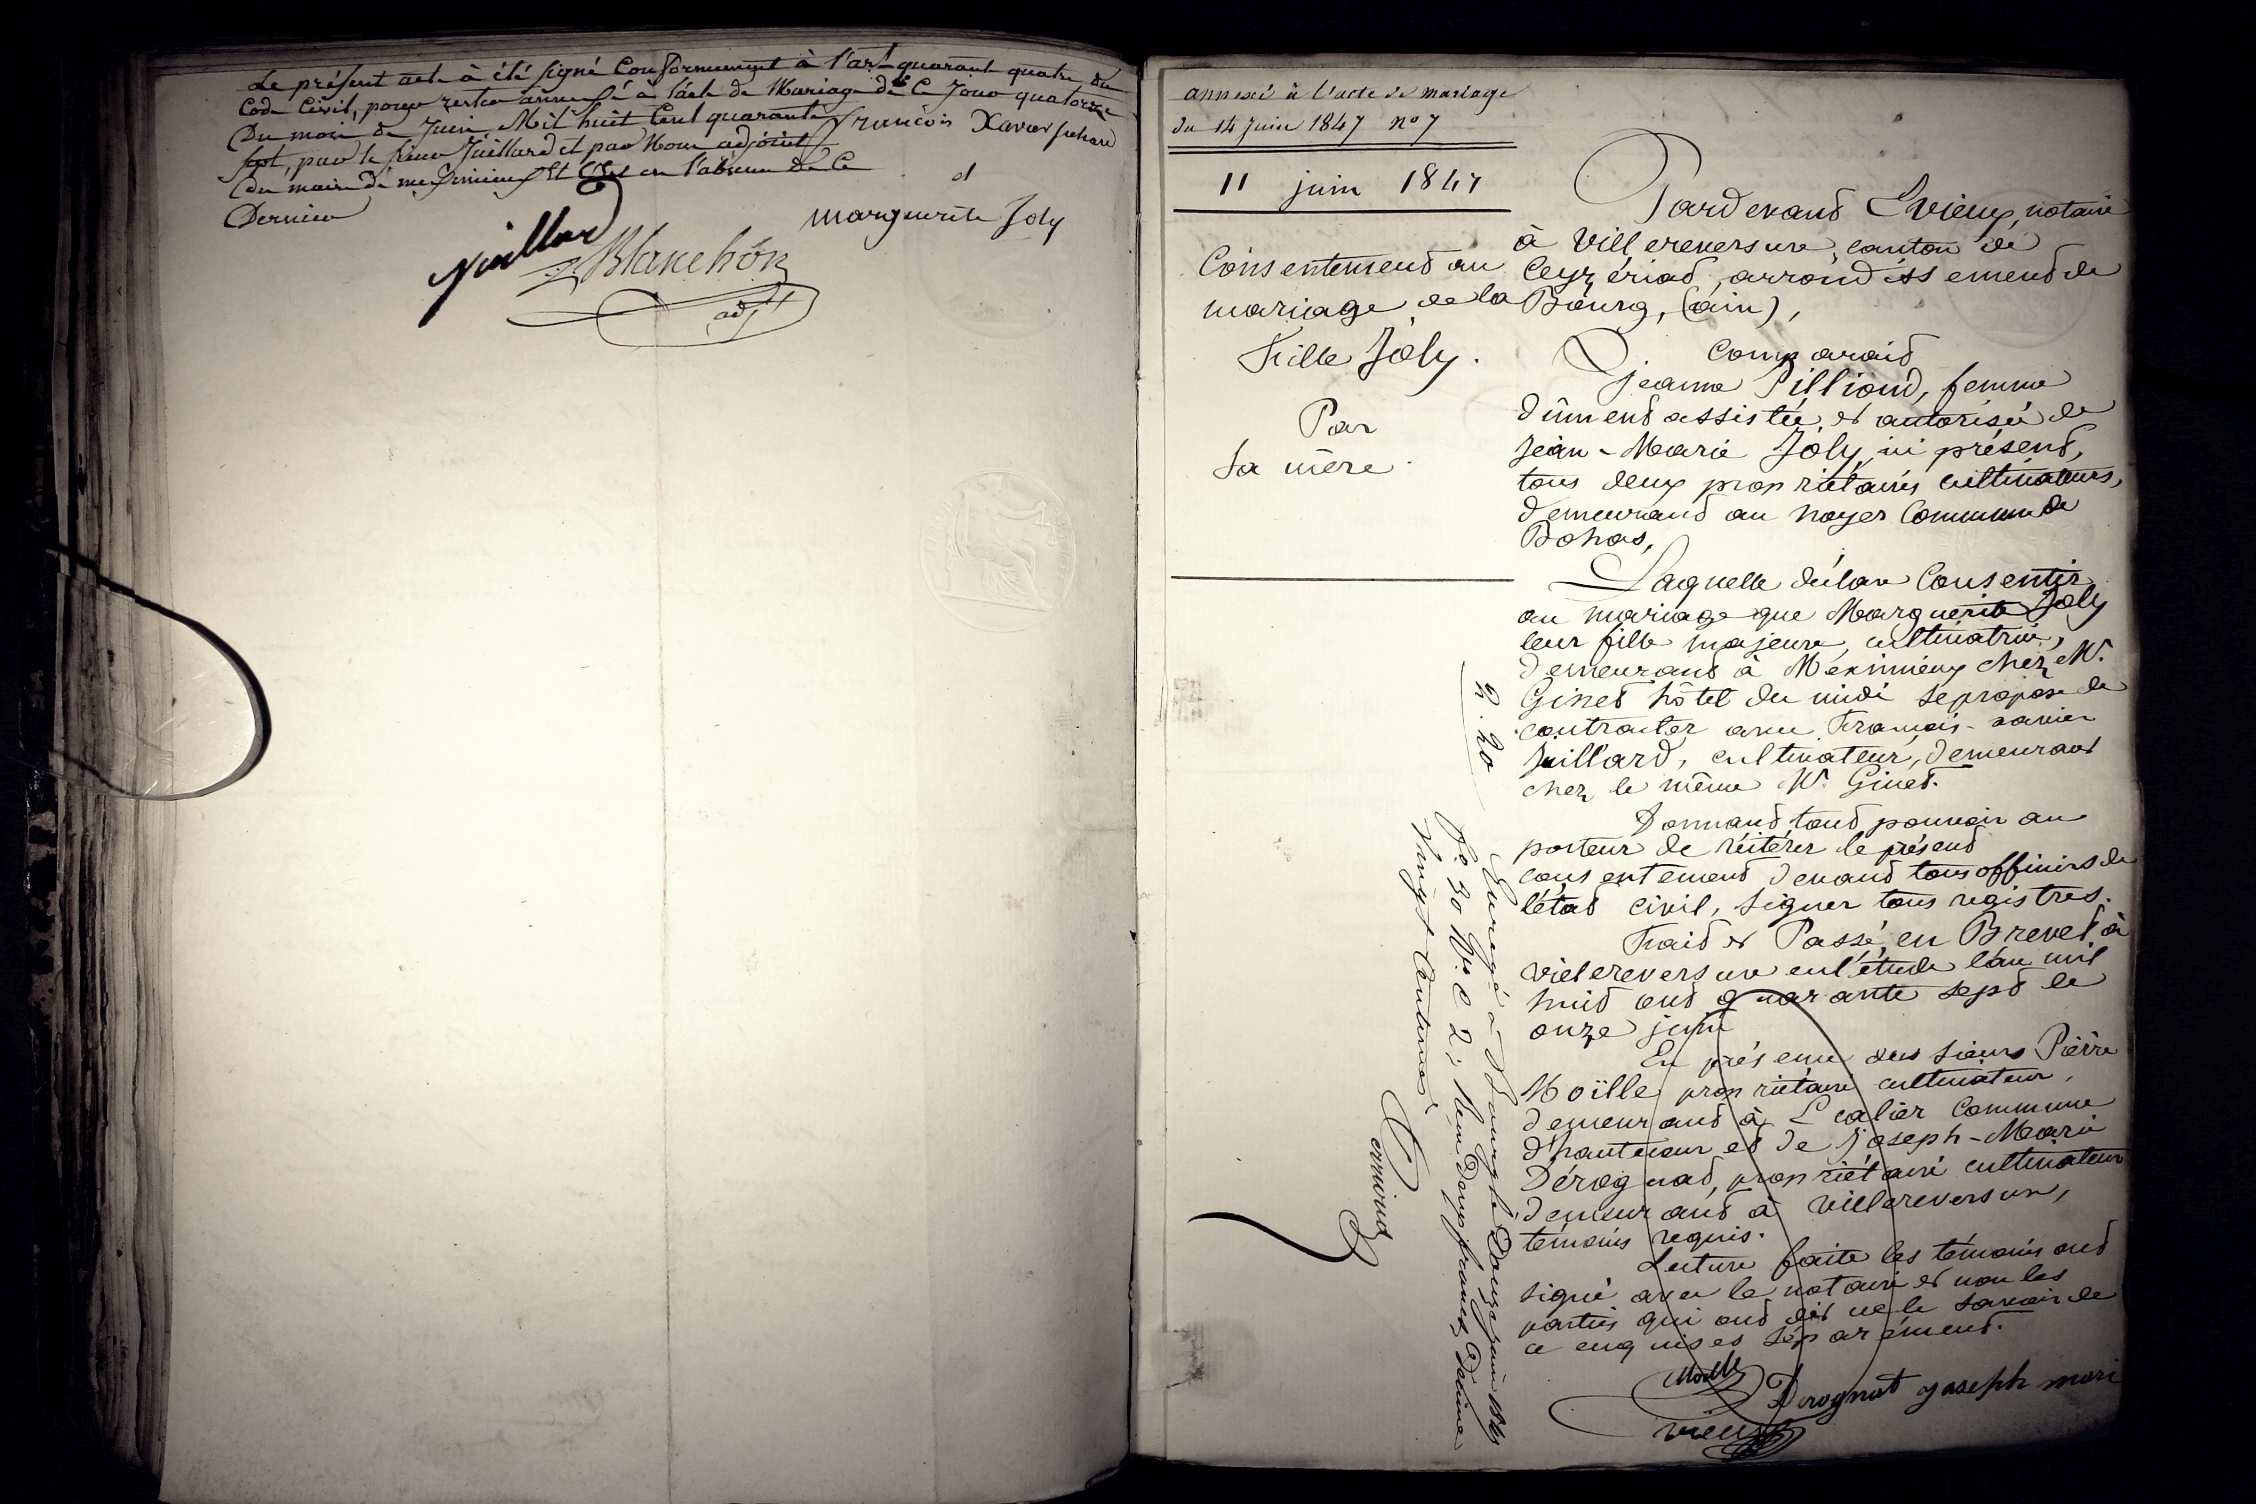 Le présent acte à été signé Conformément à l'art quarante quatre du
Code Civil, pour rester annexé à l'acte de Mariage de Ce Jour quatorze
Du mois de Juin Mil huit Cent quarante
sept, par le sieur Juillard et par Nous adjoint
du maire de meximieux Et en l'absence de Ce
Dernier
François Xavier
et
marguerite Joly
Juillard
Blanchon
adjt
annexé à l'acte de mariage
du 14 Juin 1847 no 7
11 juin 1847
Consentement au
mariage de la
fille Joly.
Par
Sa mère.
Pardevand Evieux, notaire
à Villereversure, canton de
Ceyzériad, arrondissemend de
Bourg, (ain),
Comparaid
jeanne Pilliond, femme
dûmend assistée et autorisée de
Jean-Marie Joly, ici présend,
tous deux propriétaires cultivateurs,
demeurand au noyer Commune de
Bohas,
Laquelle déclare Consentir
au mariage que Marguerite Joly
leur fille majeure, cultivatrice,
demeurand à Meximieux chez Mr.
Gined hôtel du midi se propose de
contracter avec François-xavier
Juillard, cultivateur, demeurand
chez le même Mr. Gined.
Donnand toud pouvoir au
porteur de réitérer le présend
consentemend devand tous officiers de
l'étad civil, signer tous registres.
Faid et Passé, en Breved, à
villereversure en l'étude l'an mil
huid cend quarante sepd le
onze juin
En présence des sieurs Pierre
Moïlle propriétaire cultivateur,
demeurand à Commune
d'hautecour et de joseph-Marie
Dérognad, propriétaire cultivateur
demeurand à villereversure,
témoins requis.
Lecture faite les témoins ond
signé avec le notaire et non les
parties qui ond dit ne le savoir de
ce enquises séparémend.
Moille
Derognat joseph mari
Evieux
2.20
Enregé à Bourg le Douze juin 1847
fo 30 Vo C 2; Reçu Deux francs, Décime
vingt Centimes